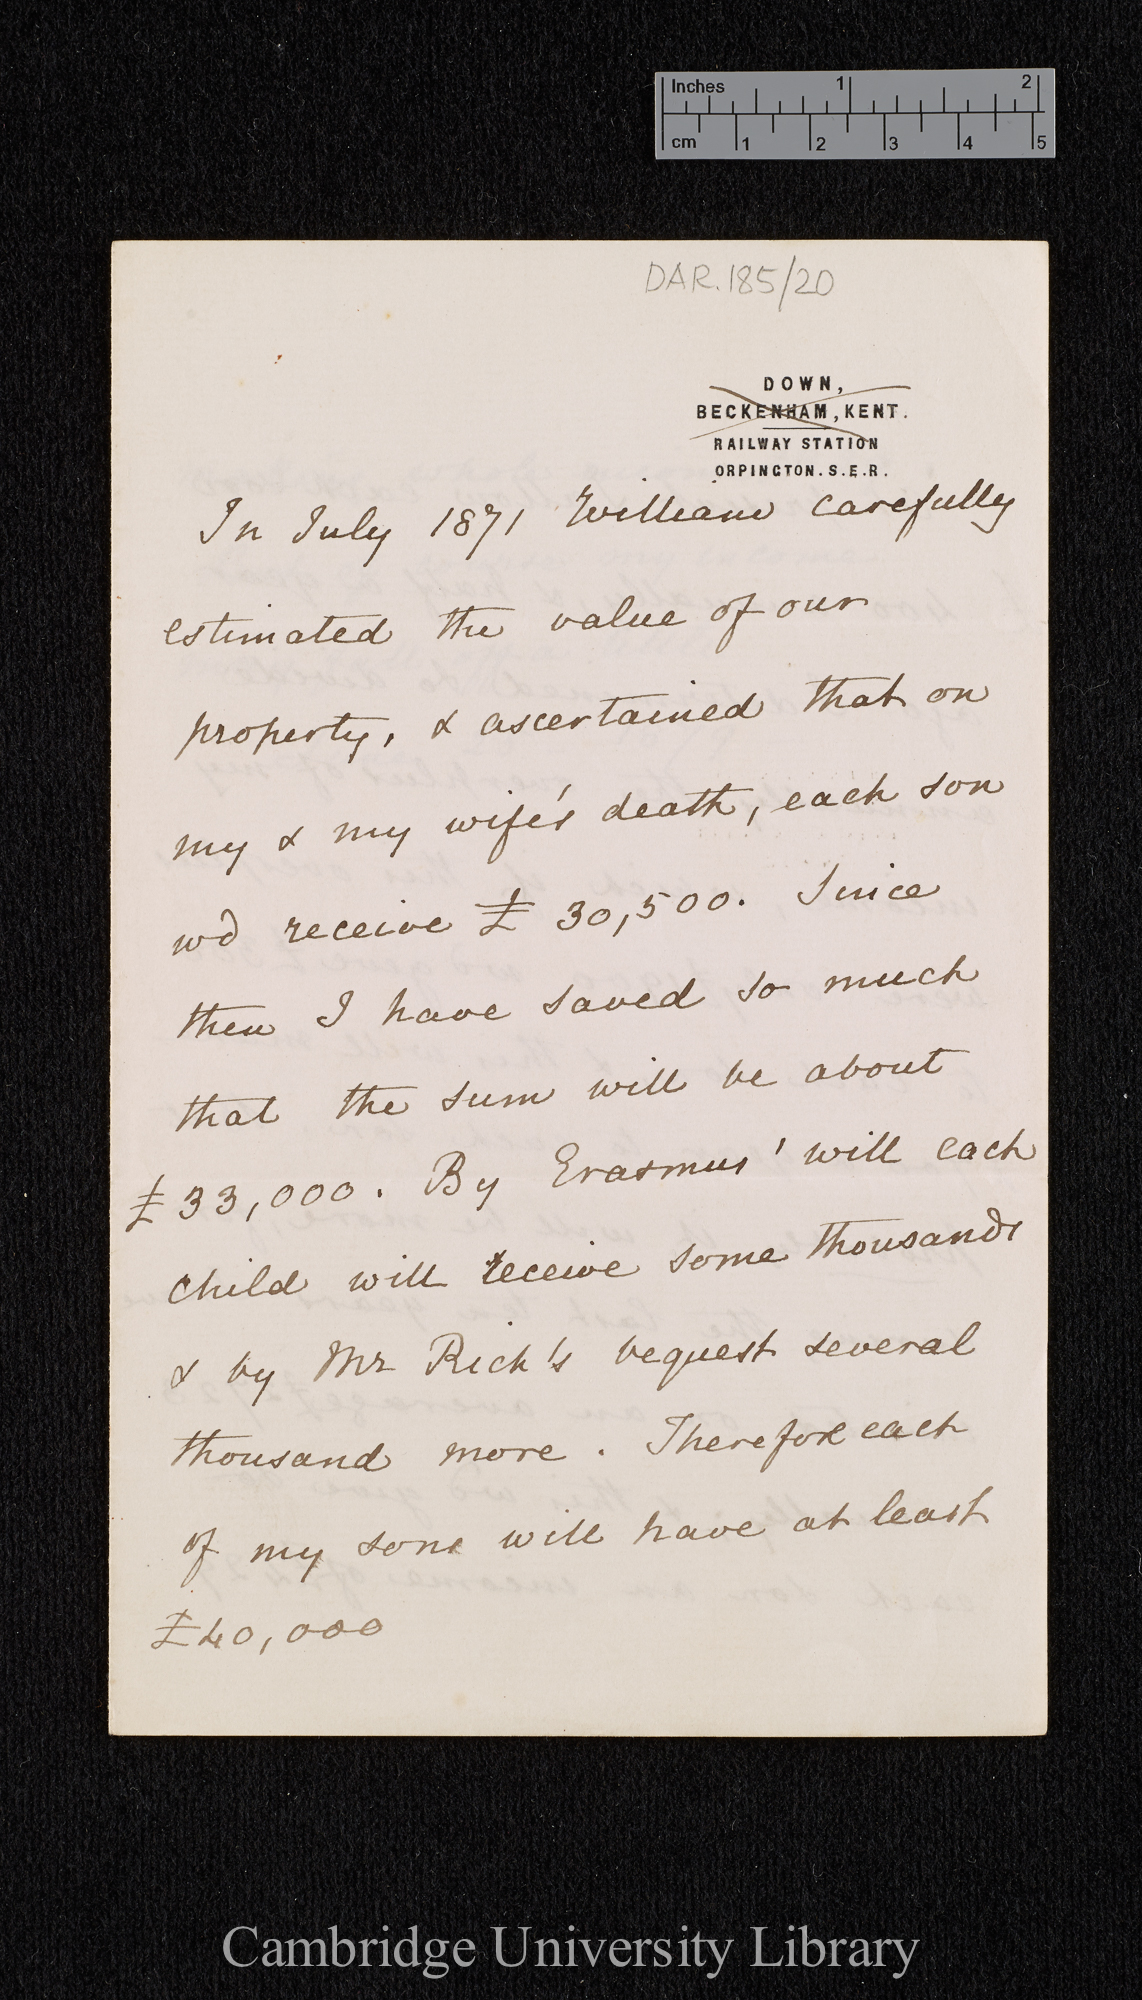 Inches 1 2
cm 1 2 3 4 5
DAR.185/20
DOWN,
BECKENHAM, KENT.
RAILWAY STATION
ORPINGTON. S.E.R.
In July 1871 William carefully
estimated the value of our
property, & ascertained that on
my & my wife's death, each son
wd receive £ 30,500. Since
then I have saved so much
that the sum will be about
£33,000. By Erasmus' will each
child will receive some thousands
& by Mr Rich's bequest several
thousand more. Therefore each
of my sons will have at least
£40,000
Cambridge University Library